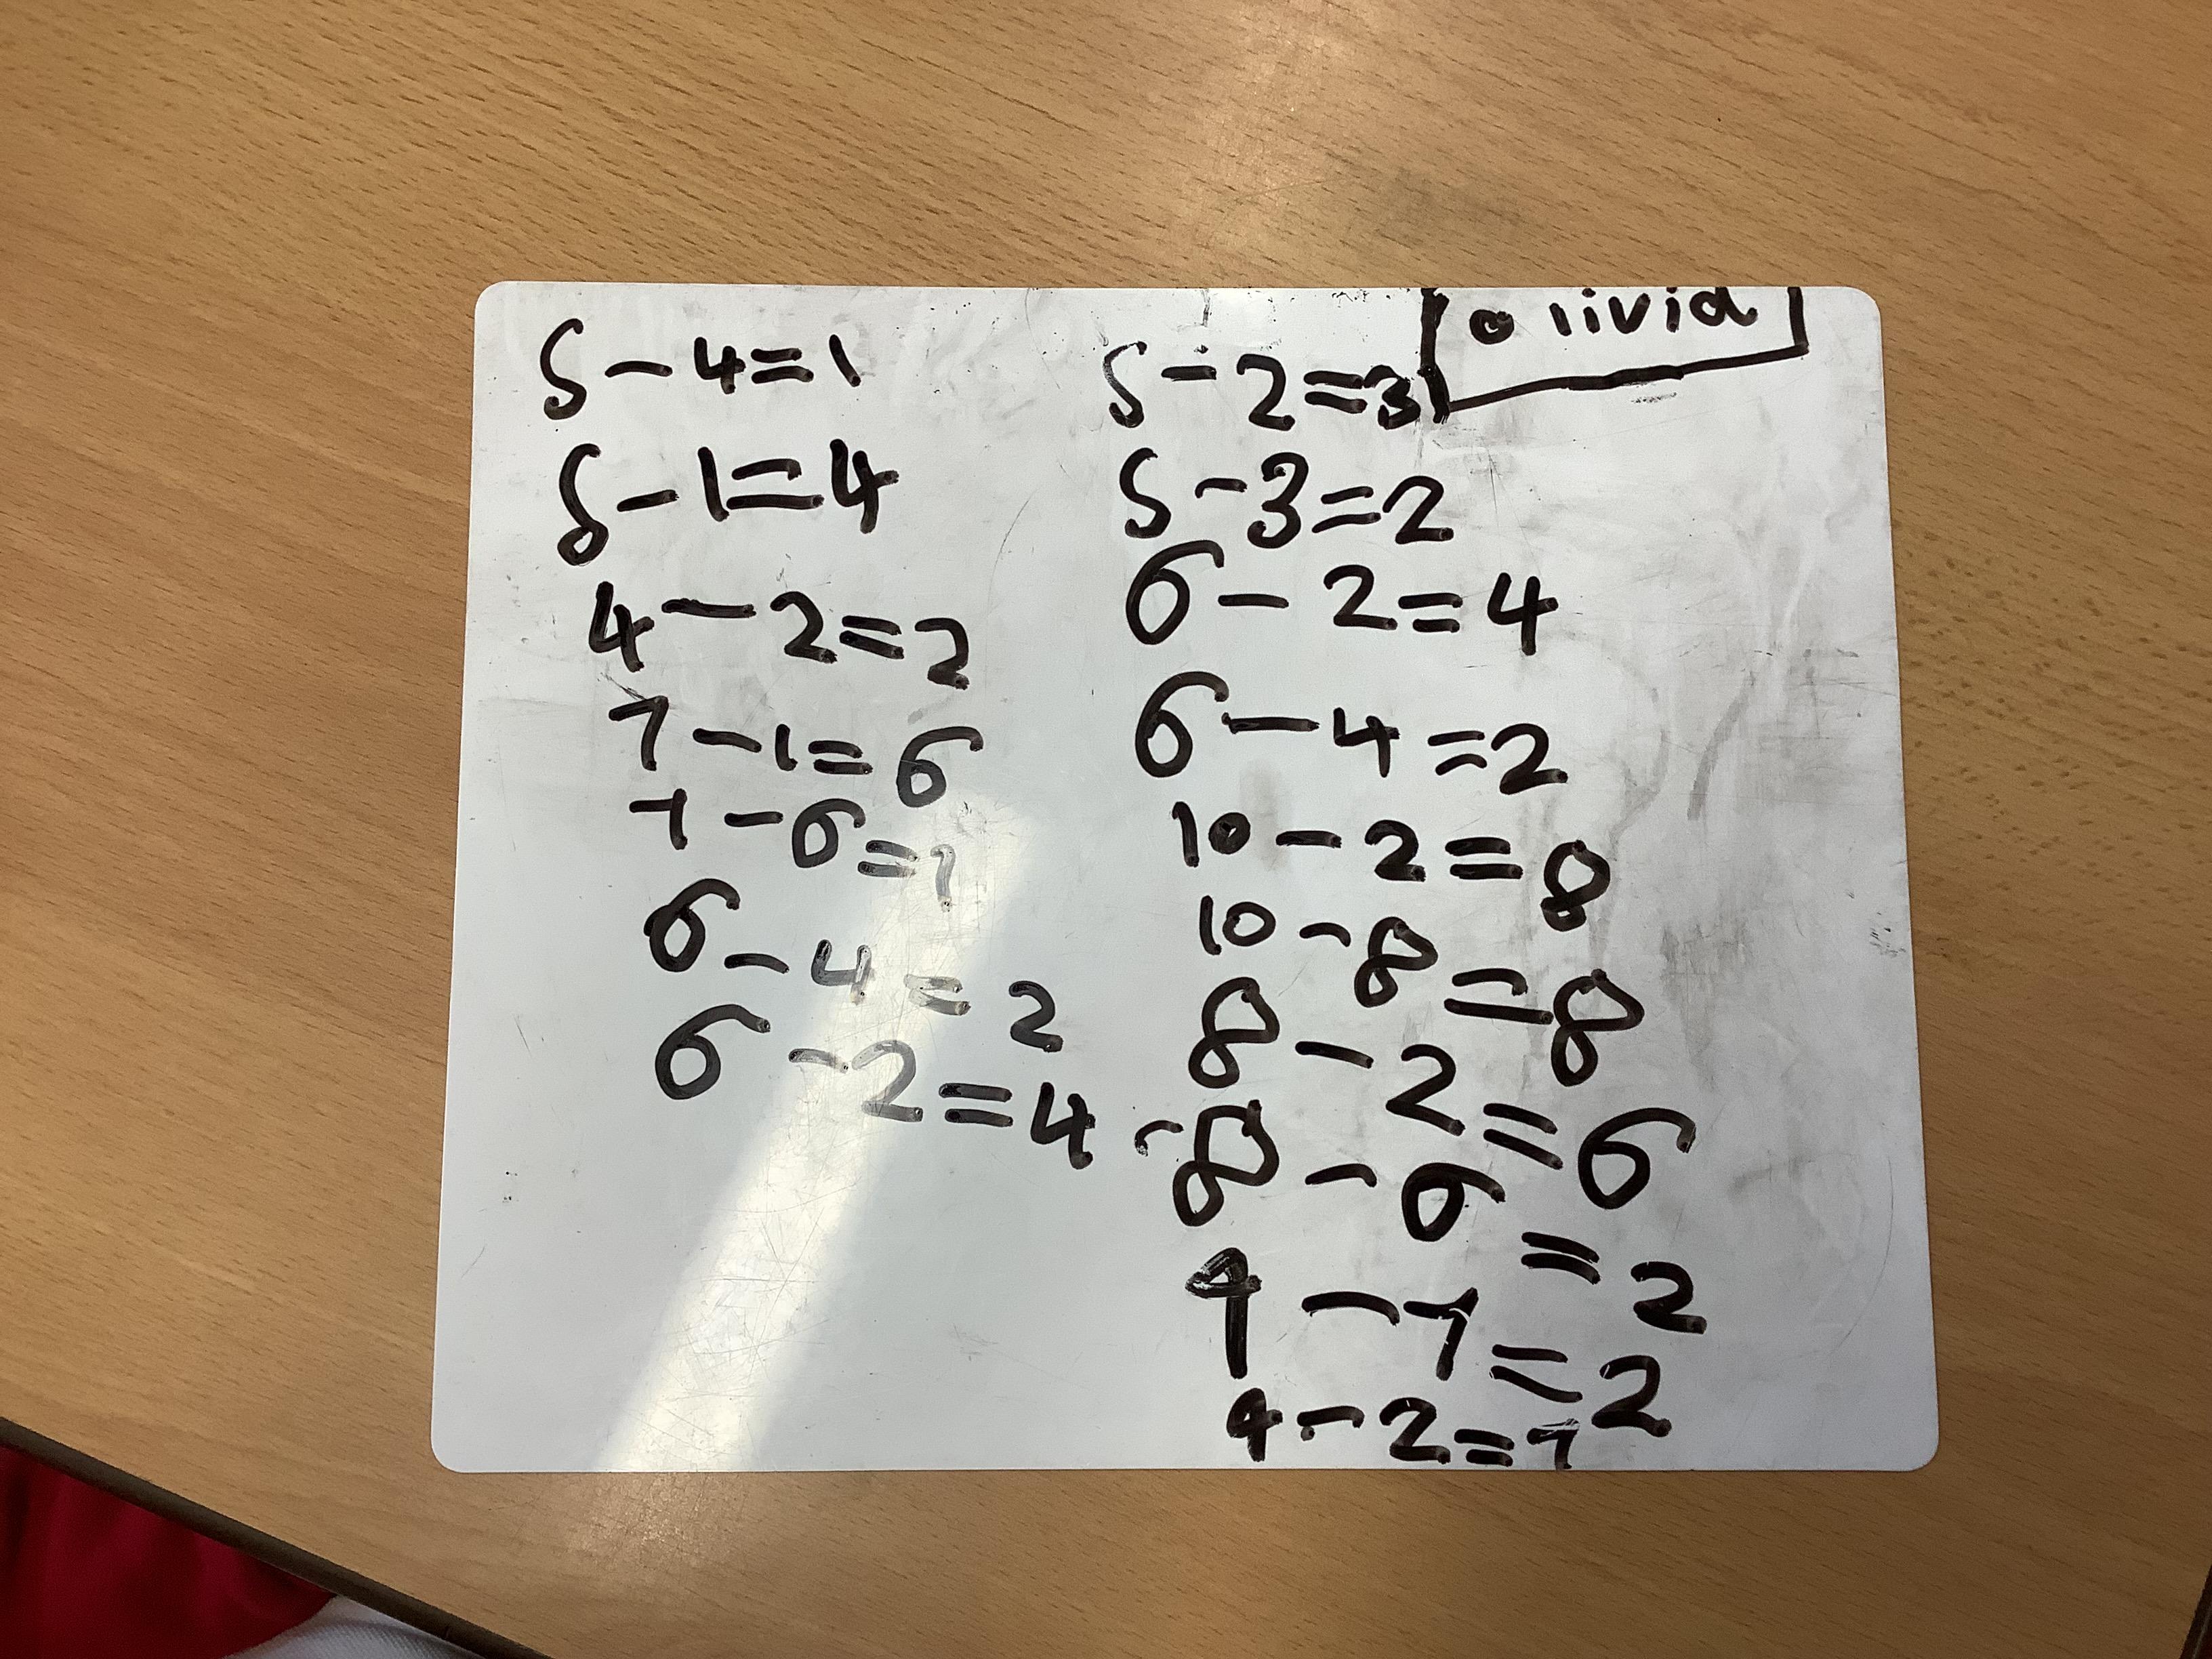 olivia
5-4=1
5-1=4
4-2=2
7-1=6
7-6=1
6-4=2
6-2=4
5-2=3
5-3=2
6-2=4
6-4=2
10-2=8
10-8=8
8-2=6
8-6=2
9-7=2
9-2=7